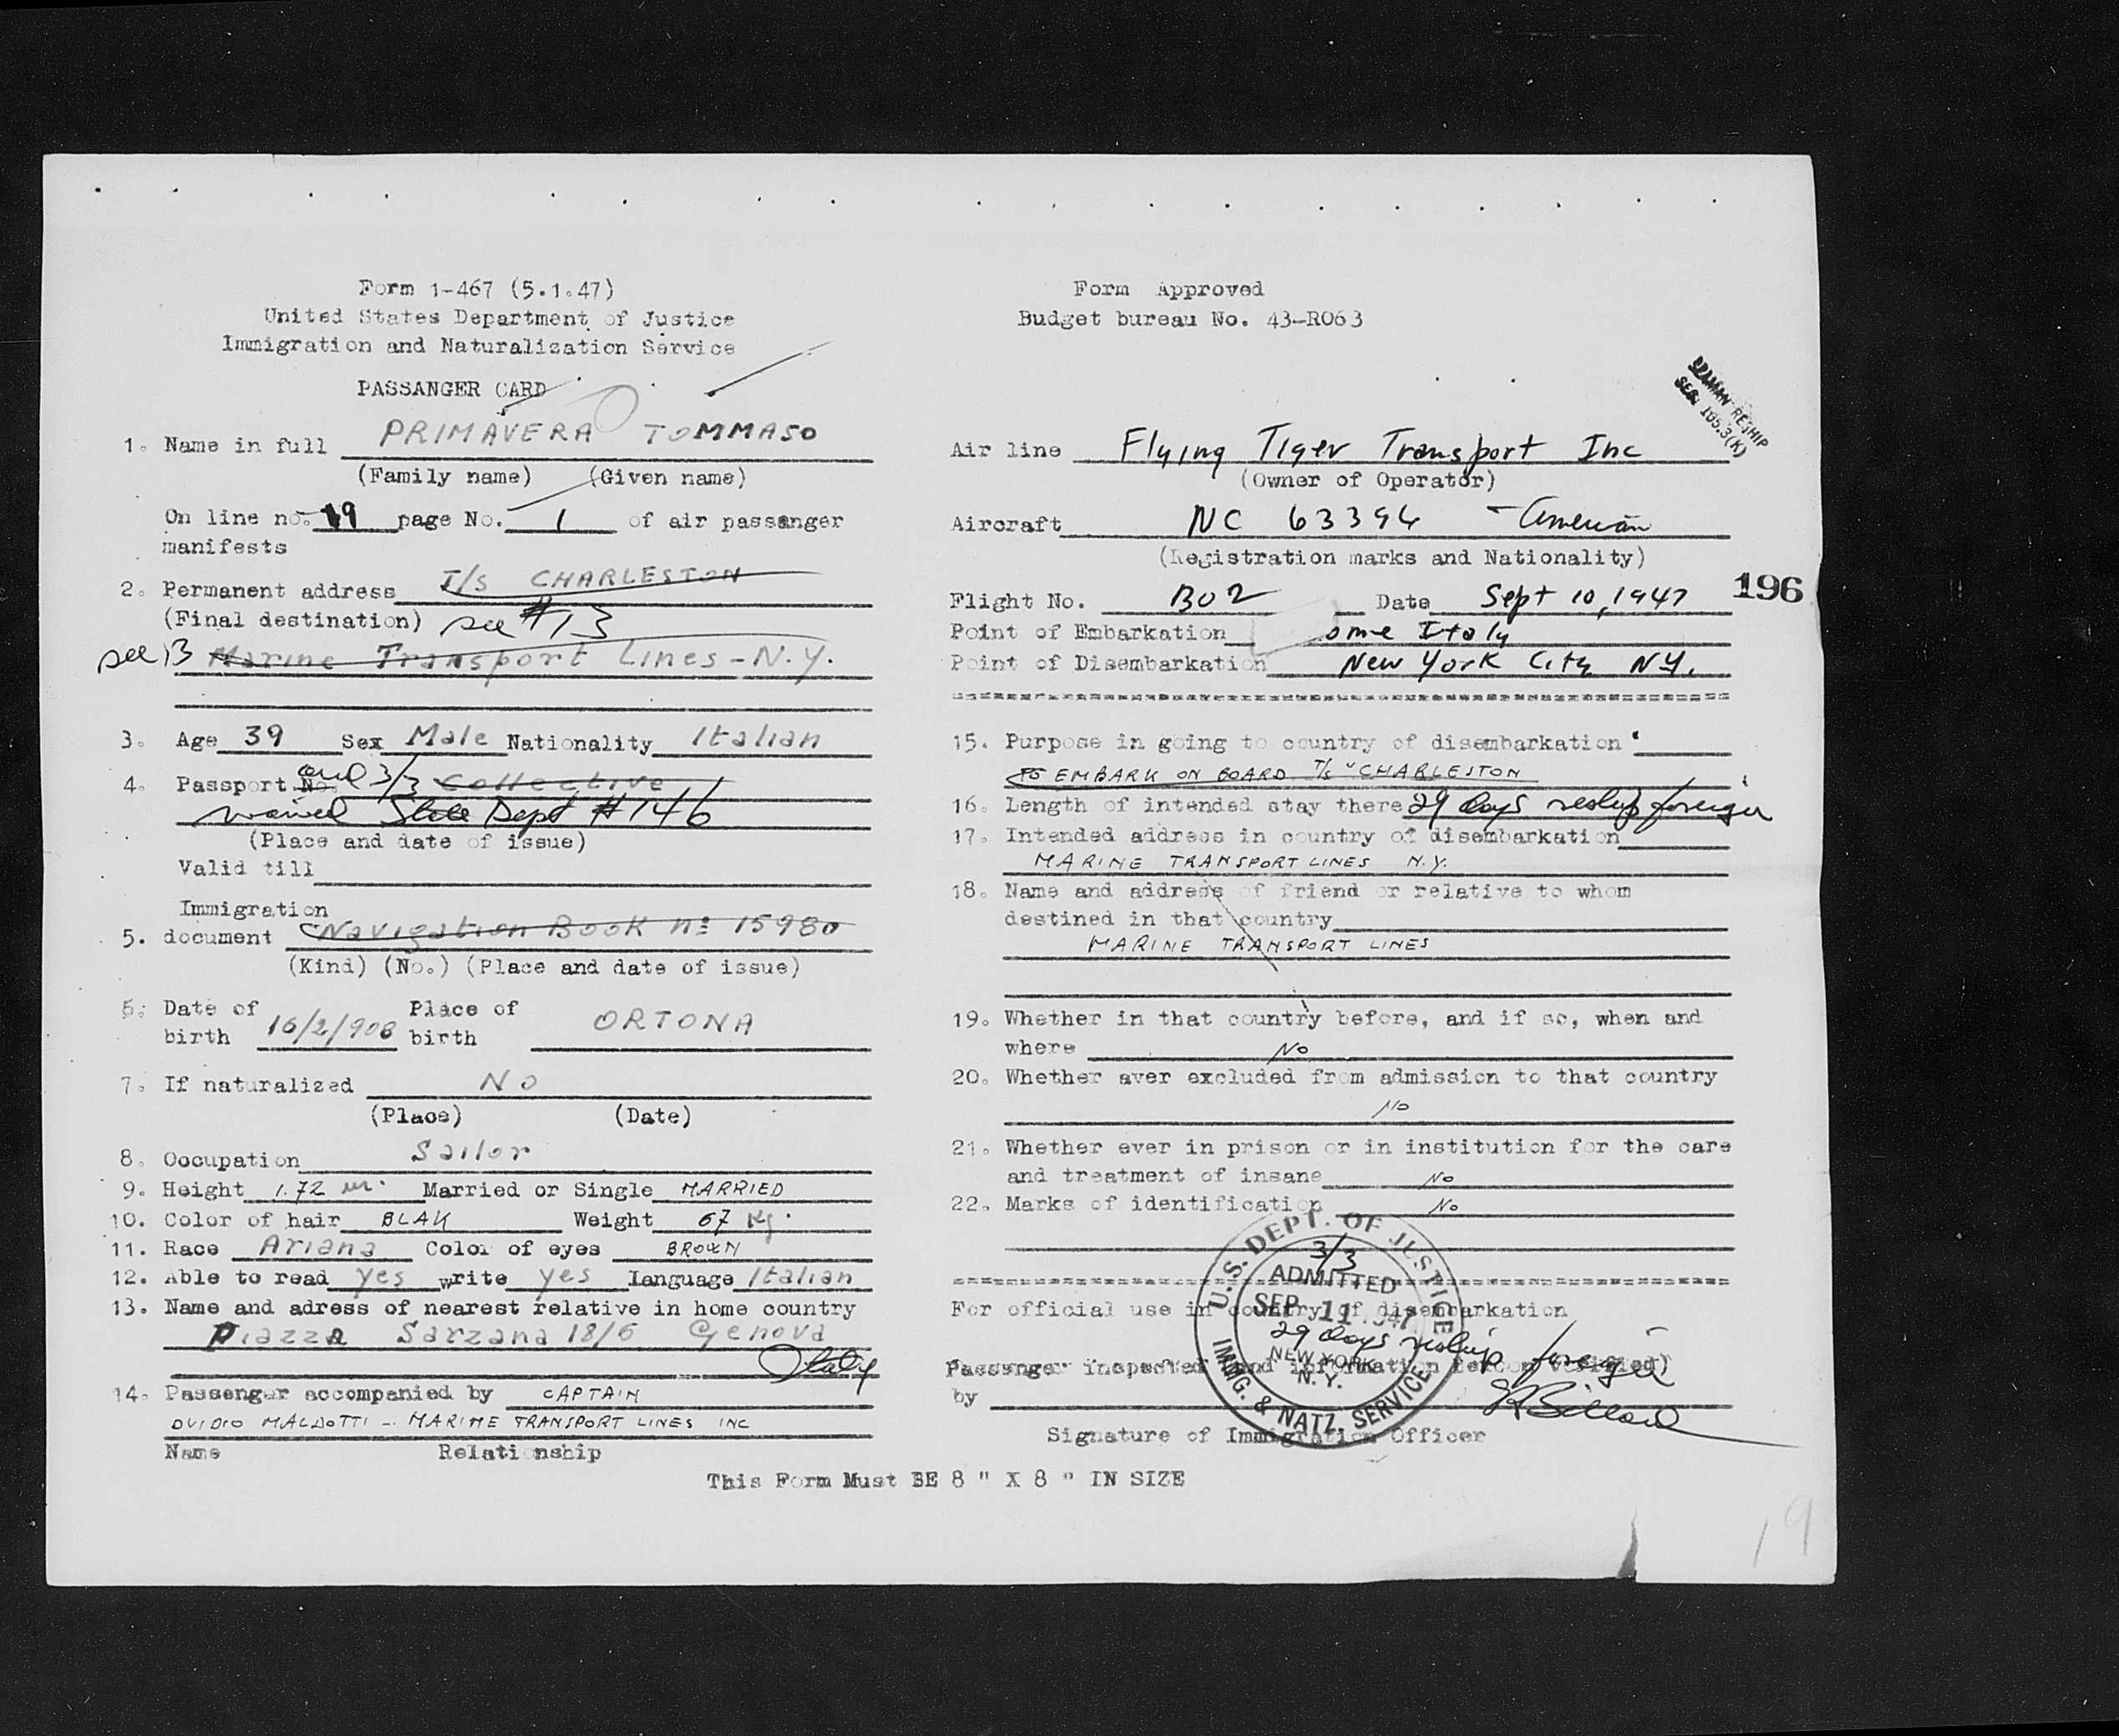 Form 1-467 (5.1.47)
United States Department of Justice
Immigration and Naturalization Service
PASSANGER CARD
1. Name in full PRIMAVERA TOMMASO
(Family name) (Given name)
On line no. 19 page No. 1 of air passanger
manifests
2. Permanent address T/s CHARLESTON
(Final destination) see #13
see 13 Marine Transport Lines - N.Y.
3. Age 39 Sex Male Nationality Italian
4. Passport No. and 3/3 Collective
waived State Dept #146
(Place and date of issue)
Valid till
Immigration
5. document Navigation Book n: 15980
(Kind) (No.) (Place and date of issue)
6. Date of Place of
birth 16/2/908 birth ORTONA
7. If naturalized No
(Place) (Date)
8. Occupation Sailor
9. Height 1.72 m. Married or Single MARRIED
10. Color of hair BLAK Weight 67 Kg.
11. Race Ariana Color of eyes BROWN
12. Able to read yes write yes language Italian
13. Name and adress of nearest relative in home country
Piazza Sarzana 18/6 Genova
Italy
14. Passenger accompanied by CAPTAIN
OVIDIO MALDOTTI - MARINE TRANSPORT LINES INC
Name Relationship
Form Approved
Budget bureau No. 43-R063
SEAMAN RESHIP
SEC. 165.3(K)
Air line Flying Tiger Transport Inc
(Owner of Operator)
Aircraft NC 63394 - American
(Registration marks and Nationality)
Flight No. B02 Date Sept 10, 1947
196
Point of Embarkation ome Italy
Point of Disembarkation New York City N.Y.
15. Purpose in going to country of disembarkation
TO EMBARK ON BOARD T/s "CHARLESTON
16. Length of intended stay there 29 days reship foreign
17. Intended address in country of disembarkation
MARINE TRANSPORT LINES N.Y.
18. Name and address of friend or relative to whom
destined in that country
MARINE TRANSPORT LINES
19. Whether in that country before, and if so, when and
where No
20. Whether aver excluded from admission to that country
No
21. Whether ever in prison or in institution for the care
and treatment of insane No
22. Marks of identification No
U.S. DEPT. OF JUSTICE
3/3
ADMITTED
SEP 11 1947
29 days reship foreign
NEW YORK
N.Y.
IMMG. & NATZ. SERVICE
For official use in country of disembarkation
Passenger inspected (and information
by
Signature of Immigration Officer
This Form Must BE 8 " X 8 " IN SIZE
19